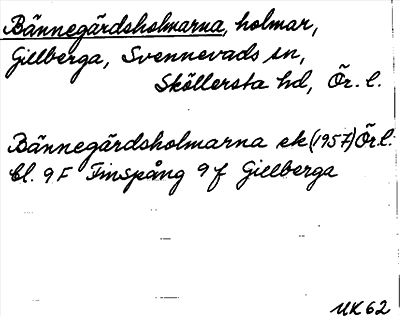 Bännegärdsholmarna, holmar,
Gillberga, Svennevads sn,
Sköllersta hd, Ör. l.
Bännegärdsholmarna ek (1957) Ör. l.
bl. 9F Finspång 9f Gillberga
UK 62